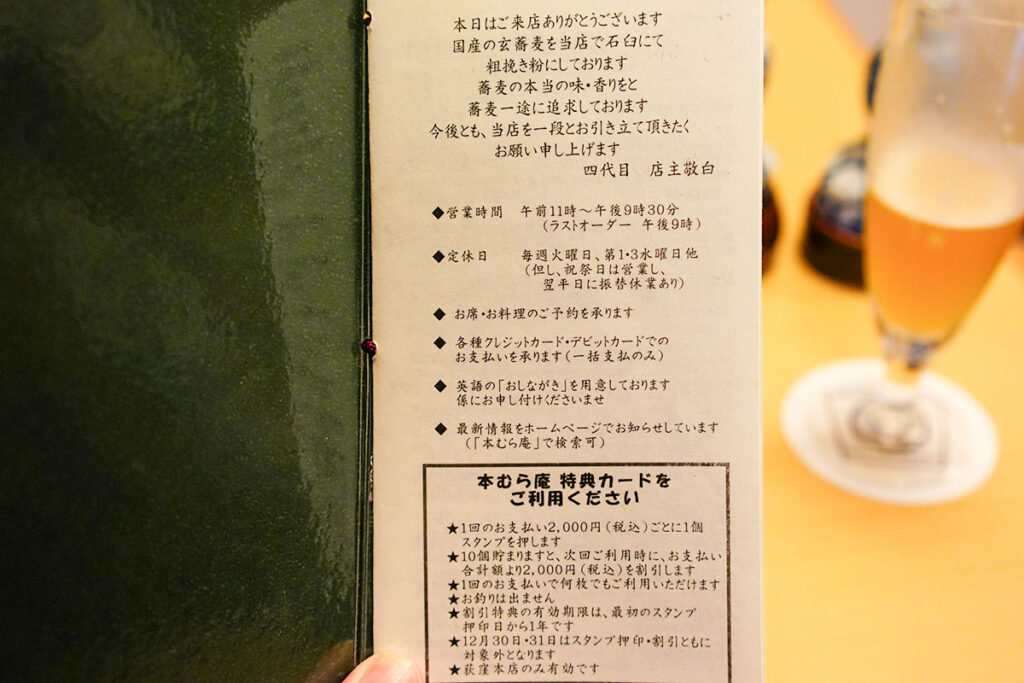 本日はご来店ありがとうございます
国産の玄蕎麦を当店で石臼にて
粗挽き粉にしております
蕎麦の本当の味・香りをと
蕎麦一途に追求しております
今後とも、当店を一段とお引き立て頂きたく
お願い申し上げます
四代目 店主敬白
◆営業時間 午前11時〜午後9時30分
(ラストオーダー 午後9時)
◆定休日 毎週火曜日、第1・3水曜日他
(但し、祝祭日は営業し、
翌平日に振替休業あり)
◆ お席・お料理のご予約を承ります
◆ 各種クレジットカード・デビットカードでの
お支払いを承ります(一括支払のみ)
◆ 英語の「おしながき」を用意しております
係にお申し付けくださいませ
◆ 最新情報をホームページでお知らせしています
(「本むら庵」で検索可)
本むら庵 特典カードを
ご利用ください
★1回のお支払い2,000円(税込)ごとに1個
スタンプを押します
★10個貯まりますと、次回ご利用時に、お支払い
合計額より2,000円(税込)を割引します
★1回のお支払いで何枚でもご利用いただけます
★お釣りは出ません
★割引特典の有効期限は、最初のスタンプ
押印日から1年です
★12月30日・31日はスタンプ押印・割引ともに
対象外となります
★荻窪本店のみ有効です